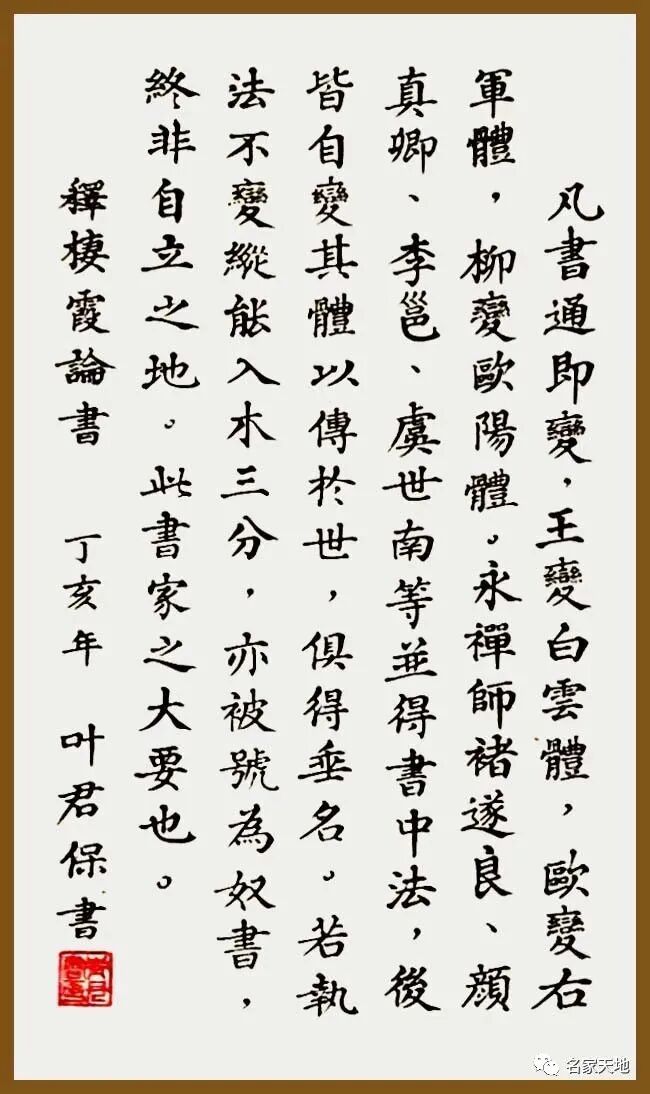 凡書通即變，王變白雲體，歐變右
軍體，柳變歐陽體。永禪師褚遂良、顏
真卿、李邕、虞世南等並得書中法，後
皆自變其體以傳於世，俱得垂名。若執
法不變縱能入木三分，亦被號為奴書，
終非自立之地。此書家之大要也。
釋棲霞論書 丁亥年 叶君保書
名家天地